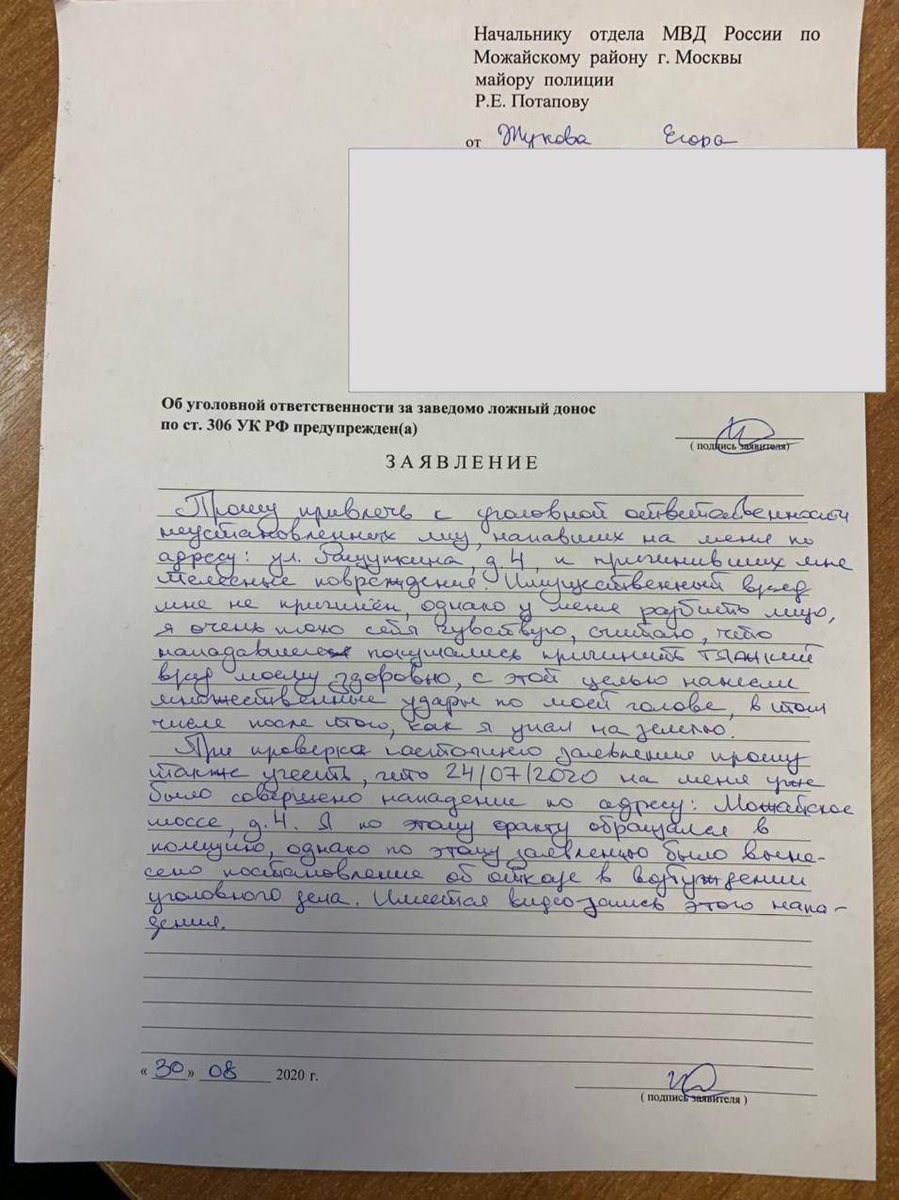 Начальнику отдела МВД России по
Можайскому району г. Москвы
майору полиции
Р.Е. Потапову
от Жукова Егора
Об уголовной ответственности за заведомо ложный донос
по ст. 306 УК РФ предупрежден(а)
( подпись заявителя)
ЗАЯВЛЕНИЕ
Прошу привлечь к уголовной ответственности
неустановленных лиц, напавших на меня по
адресу: ул. Ращупкина, д. 4, и причинивших мне
телесные повреждения. Имущественный вред
мне не причинён, однако у меня разбить лицо,
я очень плохо себя чувствую, считаю, что
нападавшие покушались причинить тяжкий
вред моему здоровью, с этой целью нанесли
множественные удары по моей голове, в том
числе после того, как я упал на землю.
При проверке настоящего заявления прошу
также учесть, что 24/07/2020 на меня уже
было совершено нападение по адресу: Можайское
шоссе, д. 4. Я по этому факту обращался в
полицию, однако по этому заявлению было выне-
сено постановление об отказе в возбуждении
уголовного дела. Имеется видеозапись этого напа-
дения.
« 30 » 08 2020 г.
( подпись заявителя )